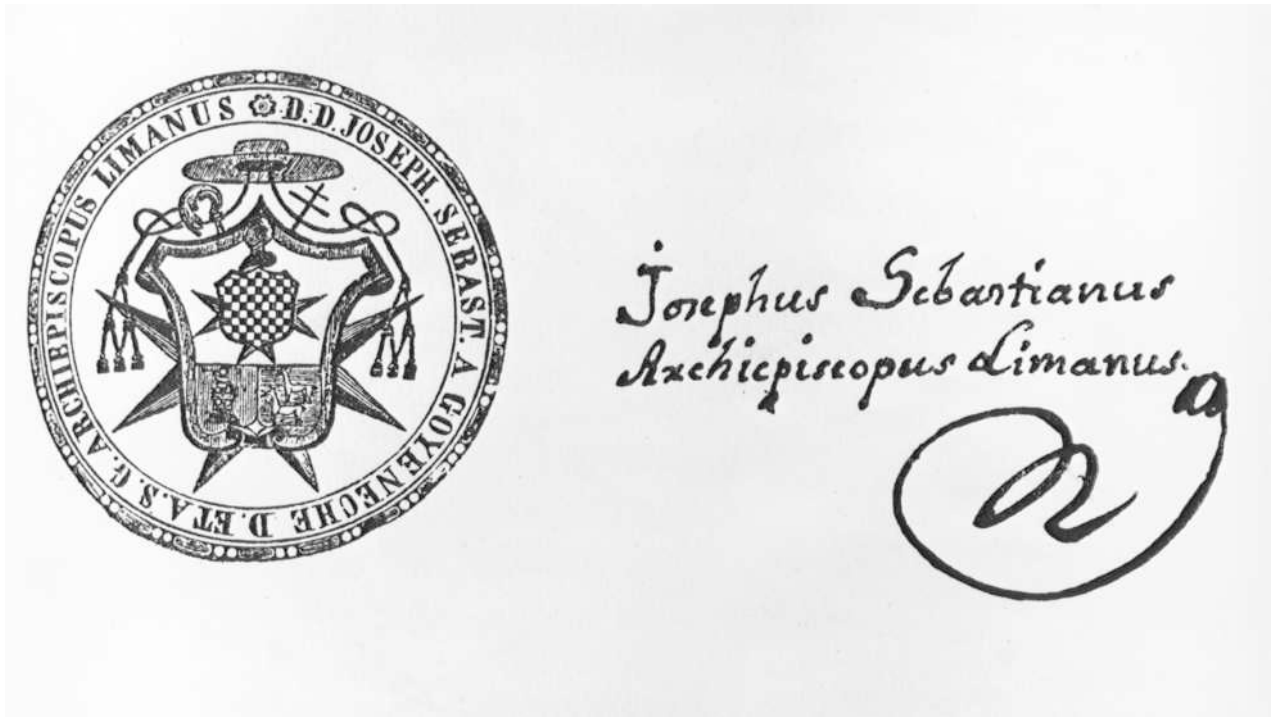 D. D. JOSEPH. SEBAST. A GOYENECHE D. ET A. S. G. ARCHIEPISCOPUS LIMANUS
Josephus Sebastianus
Archiepiscopus Limanus.